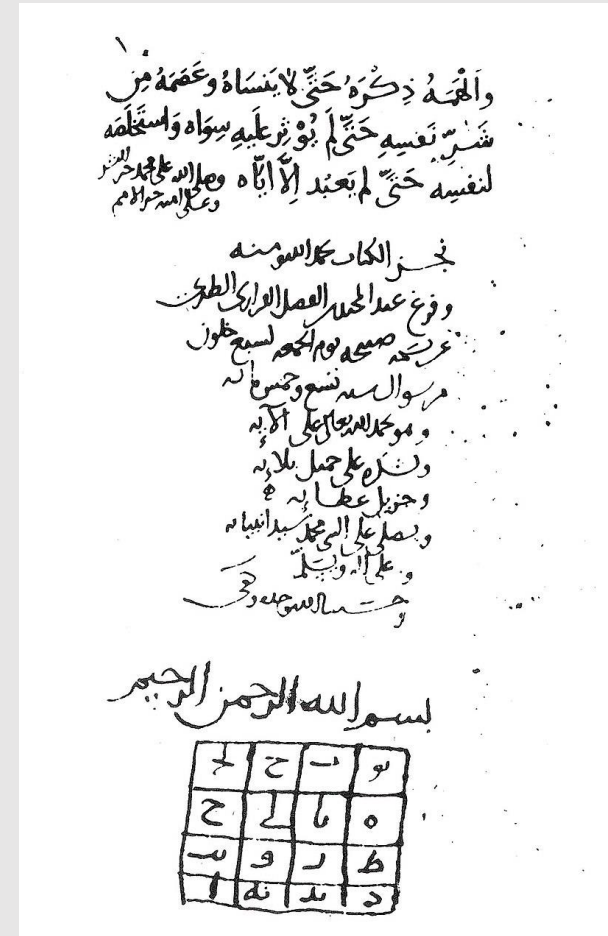 وألهمه ذِكْرَهُ حَتَّى لا يَنسَاهُ وعَصَمَهُ مِن
شَرِّ نَفسِهِ حَتَّى لَم يُؤْثِر عَلَيهِ سِوَاه وَاستَخلَصَه
لنفسِه حَتَّى لم يَعبُد إلَّا ايَّاه وصلى الله على محمد خير البشر
وعلى امته خير الامم
نجز الكتاب بحمد الله ومنه
وفرغ عبد الفضل
نسخه صبيحه يوم الجمعه لسبع خلون
من شوال سنه تسع وخمس مائه
وهو يحمد الله تعالى على آلآئه
ويشكره على جميل بلائه
وجزيل عطائه
ويصلي على النبي محمد سيد انبيائه
وعلى اله ويسلّم
وحسبنا الله وحده وكفى
بسم الله الرحمن الرحيم
ح
ه ح
ط و
د ا